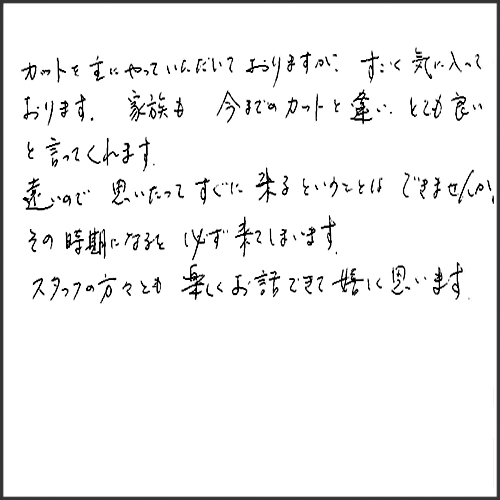 カットを主にやっていただいておりますが、すごく気に入って
おります。家族も今までのカットと違い、とても良い
と言ってくれます。
遠いので思いたってすぐに来るということはできませんが、
その時期になると必ず来てしまいます。
スタッフの方々とも楽しくお話できて嬉しく思います。